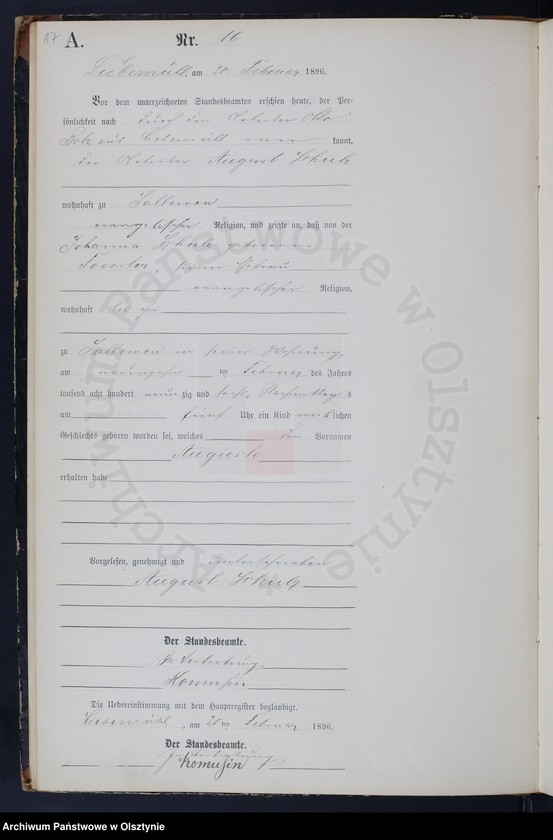 17 A. Nr. 16
Liebemühl, am 20. Februar 1896.
Vor dem unterzeichneten Standesbeamten erschien heute, der Per-
sönlichkeit nach durch den Arbeiter Otto
aus Liebemühl kannt,
der Arbeiter August Schulz
wohnhaft zu Sallewen
evangelischer Religion, und zeigte an, daß von der
Johanna Schulz geborenen
seiner Ehefrau
evangelischer Religion,
wohnhaft bei ihm
zu Sallewen in seiner Wohnung
am neunzehn ten Februar des Jahres
tausend acht hundert neunzig und sechs, Nachmittags
um fünf Uhr ein Kind weiblichen
Geschlechts geboren worden sei, welches den Vornamen
Auguste
erhalten habe
Vorgelesen, genehmigt und unterschrieben
August Schulz
Der Standesbeamte.
In Vertretung
Komussin
Die Uebereinstimmung mit dem Hauptregister beglaubigt.
Liebemühl, am 20 ten Februar 1896.
Der Standesbeamte.
In Vertretung
Komussin
Archiwum Państwowe w Olsztynie
Archiwum Państwowe w Olsztynie